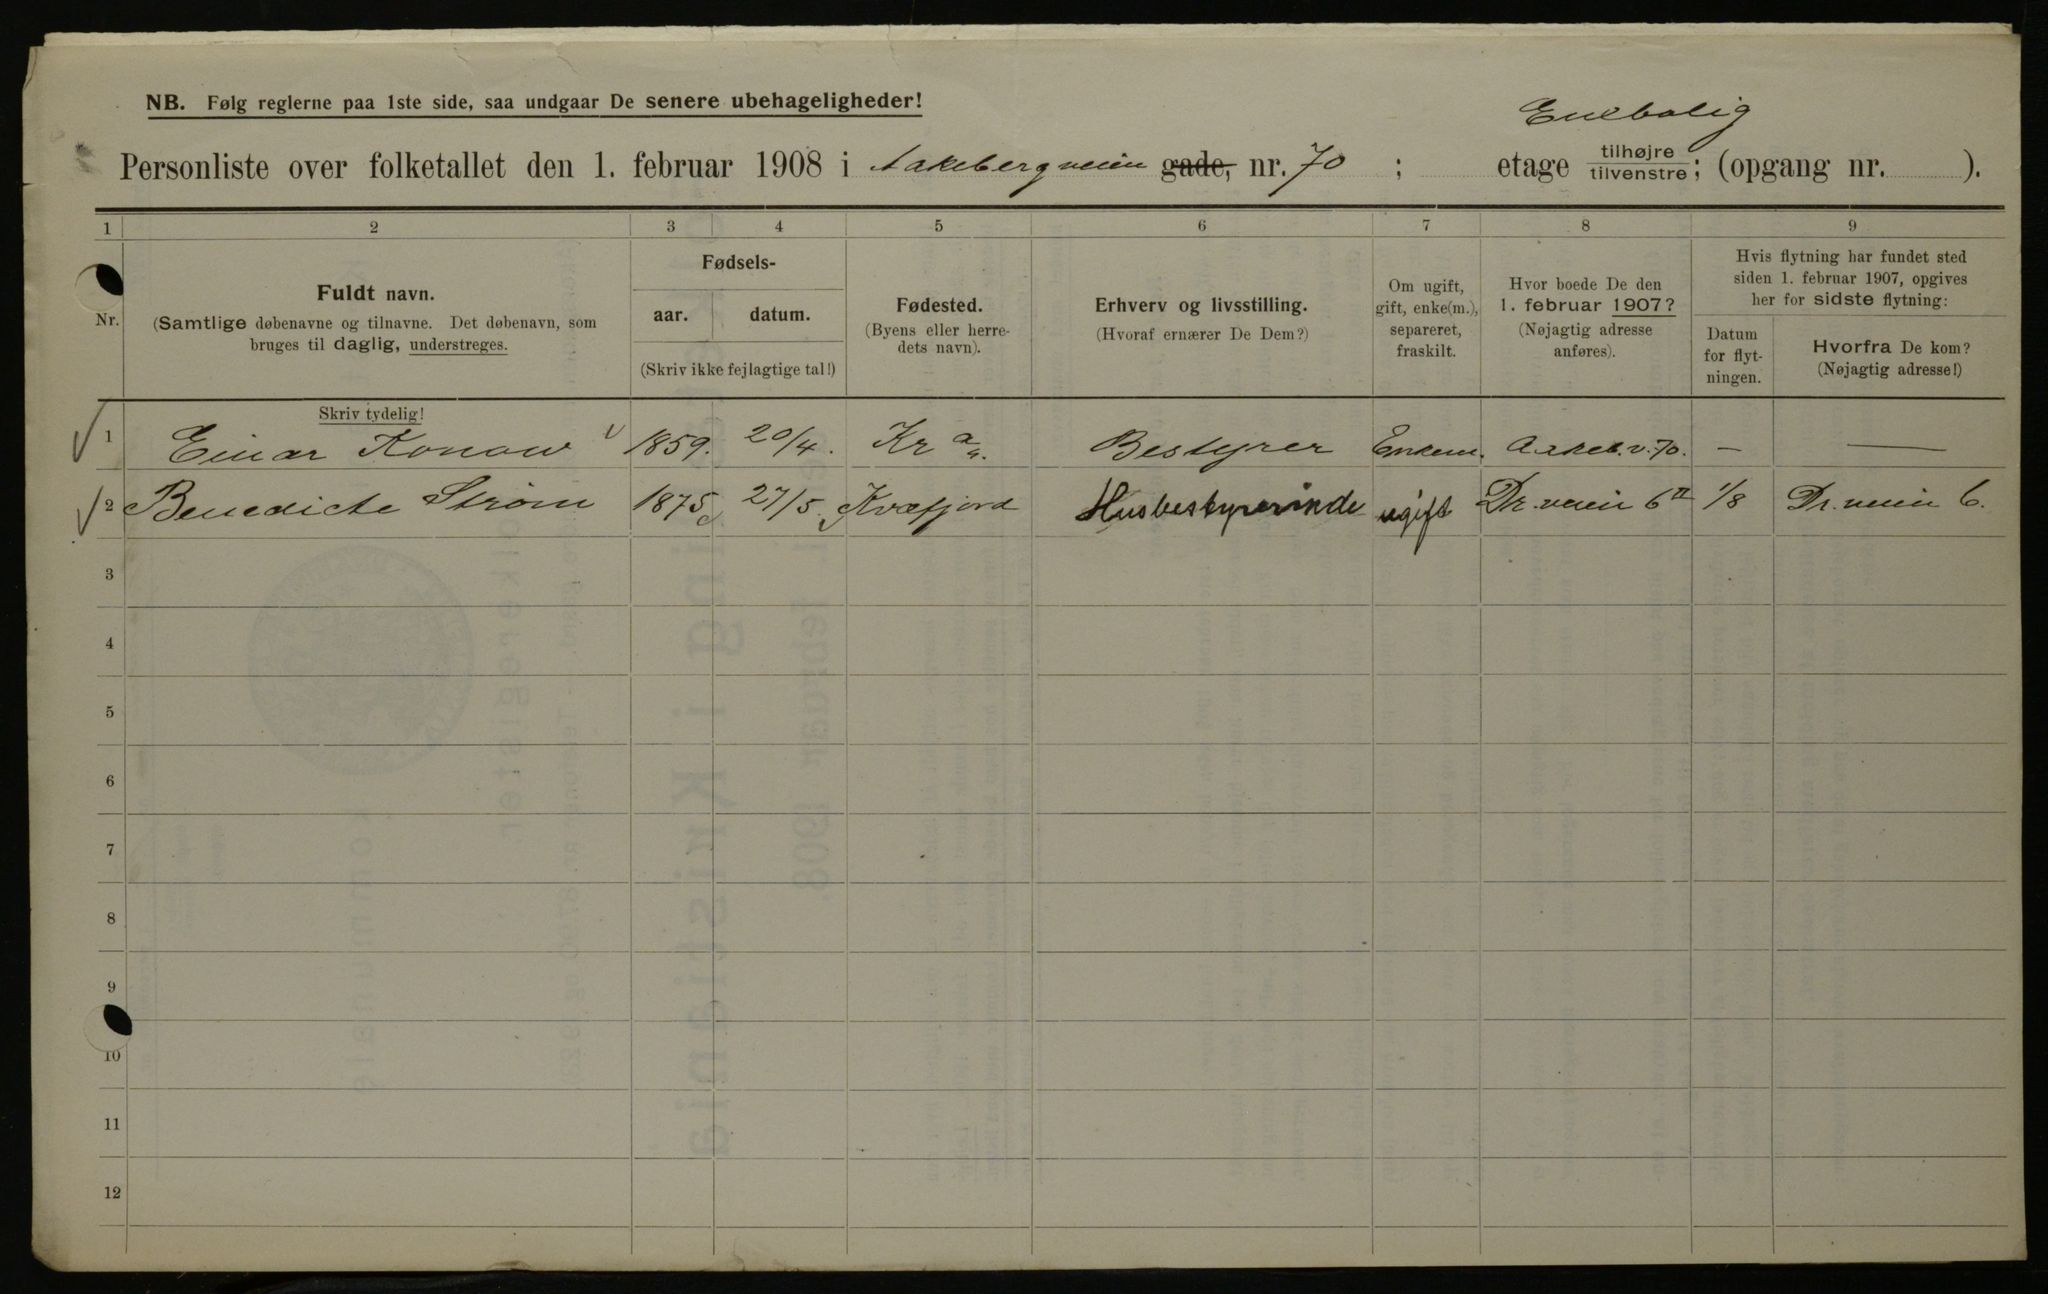 NB. Følg reglerne paa 1ste side, saa undgaar De senere ubehageligheder!
Enebolig
Personliste over folketallet den 1. februar 1908 i Aakebergveien gade, nr. 70 ; etage tilhøjre tilvenstre; (opgang nr. ).
1 2 3 4 5 6 7 8 9
Nr.
Fuldt navn.
(Samtlige døbenavne og tilnavne. Det døbenavn, som
bruges til daglig, understreges.
Fødsels-
aar. datum.
(Skriv ikke fejlagtige tal!)
Fødested.
(Byens eller herre-
dets navn).
Erhverv og livsstilling.
(Hvoraf ernærer De Dem?)
Om ugift,
gift, enke(m.),
separeret,
fraskilt.
Hvor boede De den
1. februar 1907?
(Nøjagtig adresse
anføres).
Hvis flytning har fundet sted
siden 1. februar 1907, opgives
her for sidste flytning:
Datum
for flyt-
ningen.
Hvorfra De kom?
(Nøjagtig adresse!)
Skriv tydelig!
1 Einar Konow 1859. 20/4. Kr a. Bestyrer Enkem. Aakeb.v. 70. — —
2 Benedicte Strøm 1875 27/5 Kvæfjord Husbestyrerinde ugift Dr. veien 6 II 1/8 Dr. veien 6.
3
4
5
6
7
8
9
10
11
12